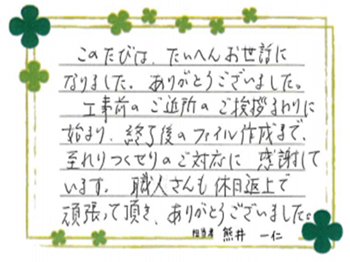 このたびは、たいへんお世話に
なりました。ありがとうございました。
工事前のご近所のご挨拶まわりに
始まり、終了後のファイル作成まで、
至れりつくせりのご対応に 感謝して
います。 職人さんも休日返上で
頑張って頂き、ありがとうございました。
担当者 熊井 一仁